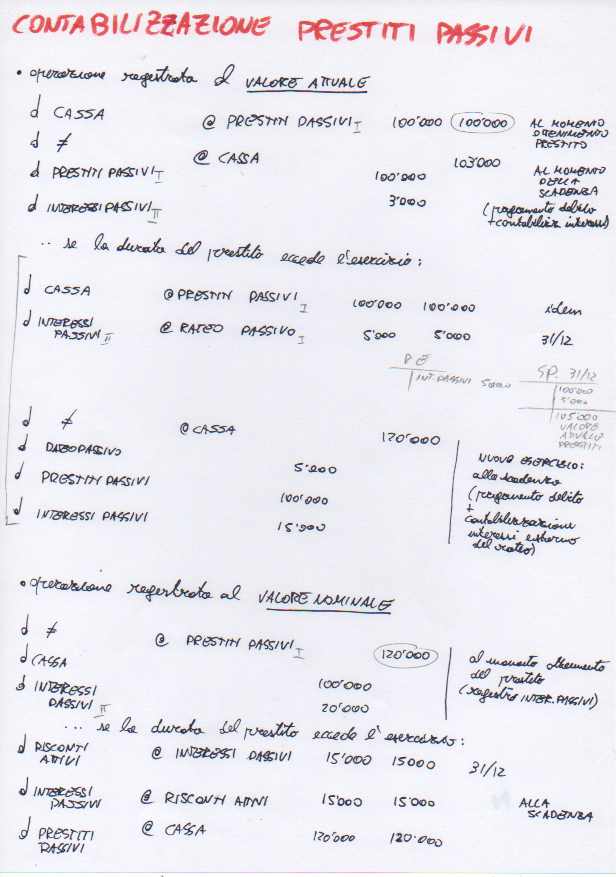 CONTABILIZZAZIONE PRESTITI PASSIVI
• operazione registrata al VALORE ATTUALE
d CASSA @ PRESTITI PASSIVI I 100'000 100'000 AL MOMENTO OTTENIMENTO PRESTITO
d ≠ @ CASSA 103'000
d PRESTITI PASSIVI I 100'000 AL MOMENTO DELLA SCADENZA
d INTERESSI PASSIVI II 3'000 (pagamento debito + contabilizz interessi)
.. se la durata del prestito eccede l'esercizio:
d CASSA @ PRESTITI PASSIVI I 100'000 100'000 idem
d INTERESSI PASSIVI II @ RATEO PASSIVO I 5'000 5'000 31/12
P E SP. 31/12
INT. PASSIVI 5'000 100'000
5'000
105'000
VALORE
ATTUALE
PRESTITI
d ≠ @ CASSA 120'000
d RATEO PASSIVO 5'000
d PRESTITI PASSIVI 100'000
d INTERESSI PASSIVI 15'000
NUOVO ESERCIZIO:
alla scadenza
(pagamento debito
+
contabilizzazione
interessi e storno
del rateo)
• operazione registrata al VALORE NOMINALE
d ≠ @ PRESTITI PASSIVI I 120'000
d CASSA 100'000
d INTERESSI PASSIVI II 20'000
al momento ottenimento
del prestito
(registro INTER. PASSIVI)
... se la durata del prestito eccede l'esercizio:
d RISCONTI ATTIVI @ INTERESSI PASSIVI 15'000 15000 31/12
d INTERESSI PASSIVI @ RISCONTI ATTIVI 15'000 15'000 ALLA SCADENZA
d PRESTITI PASSIVI @ CASSA 120'000 120'000